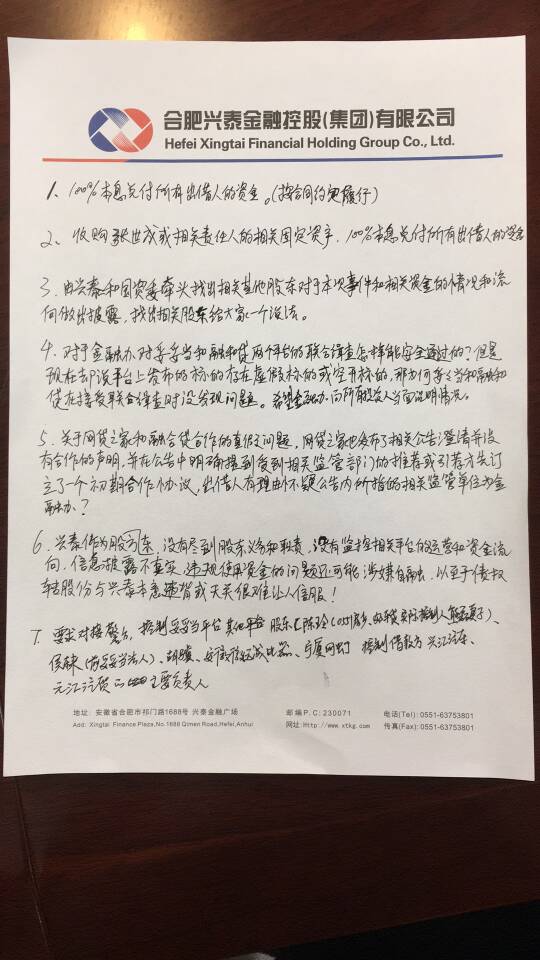 合肥兴泰金融控股(集团)有限公司
Hefei Xingtai Financial Holding Group Co., Ltd.
1、100%本息兑付所有出借人的资金。(按合同约定履行)
2、收购张世成或相关责任人的相关固定资产，100%本息兑付所有出借人的资金
3. 由兴泰和国资委牵头找出相关其他股东对于本次事件和相关资金的情况和流
向做出披露，找出相关股东给大家一个说法。
4. 对于金融办对妥妥当和融和贷两个平台的联合缉查怎样能安全通过的？但是
现在却说平台上发布的标的存在虚假标的或空开标的，那为何妥妥当和融和
贷在接受联合缉查时没发现问题。希望金融办向所有投资人当面说明情况。
5. 关于网贷之家和融合贷合作的真假问题，网贷之家也发布了相关公告澄清并没
有合作的声明，并在公告中明确提到受到相关监管部门的推荐或引荐才先订
立了一个初期合作协议，出借人有理由怀疑公告内所指的相关监管单位为金
融办？
6. 兴泰作为股东，没有尽到股东义务和职责，没有监控相关平台的运营和资金流
向，信息披露不真实，违规使用资金的问题还可能涉嫌自融，以至于债权
转股份与兴泰本意违背或无关很难让人信服！
7. 要求对接警方，控制妥妥当平台其他平台股东
侯缺(前妥妥当法人)、宁夏网虹 控制借款方 兴江汽车、
元江汽贸 主要负责人
地址: 安徽省合肥市祁门路1688号 兴泰金融广场
邮编P.C: 230071
电话(Tel): 0551-63753801
Add: Xingtai Finance Plaza,No.1688 Qimen Road,Hefei,Anhui
网址:Http://www.xtkg.com
传真(Fax):0551-63753801